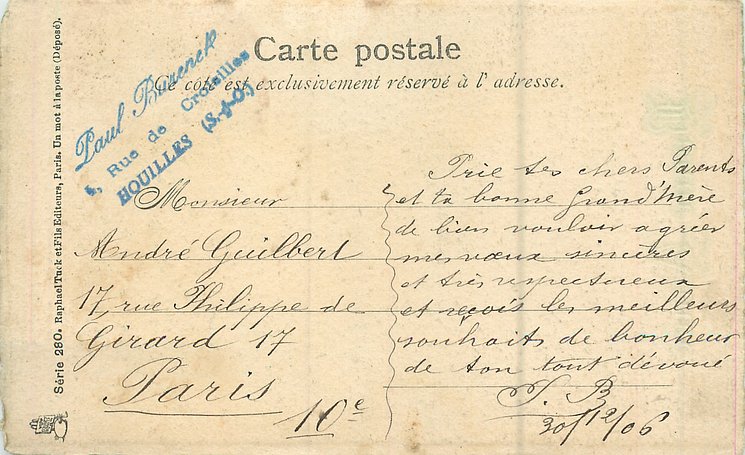 Carte postale
Ce côté est exclusivement réservé à l'adresse.
Paul
Rue de Croteilles
HOUILLES (S.-&-O.)
Monsieur
André Guilbert
17, rue Philippe de
Girard 17
Paris
10e
Prie tes chers Parents
et ta bonne Grand'Mère
de bien vouloir agréer
mes vœux sincères
et très respectueux
et reçois les meilleurs
souhaits de bonheur
de ton tout dévoué
P. B
30/12/06
Série 280. Raphael Tuck et Fils Editeurs, Paris. Un mot à la poste (Déposé).